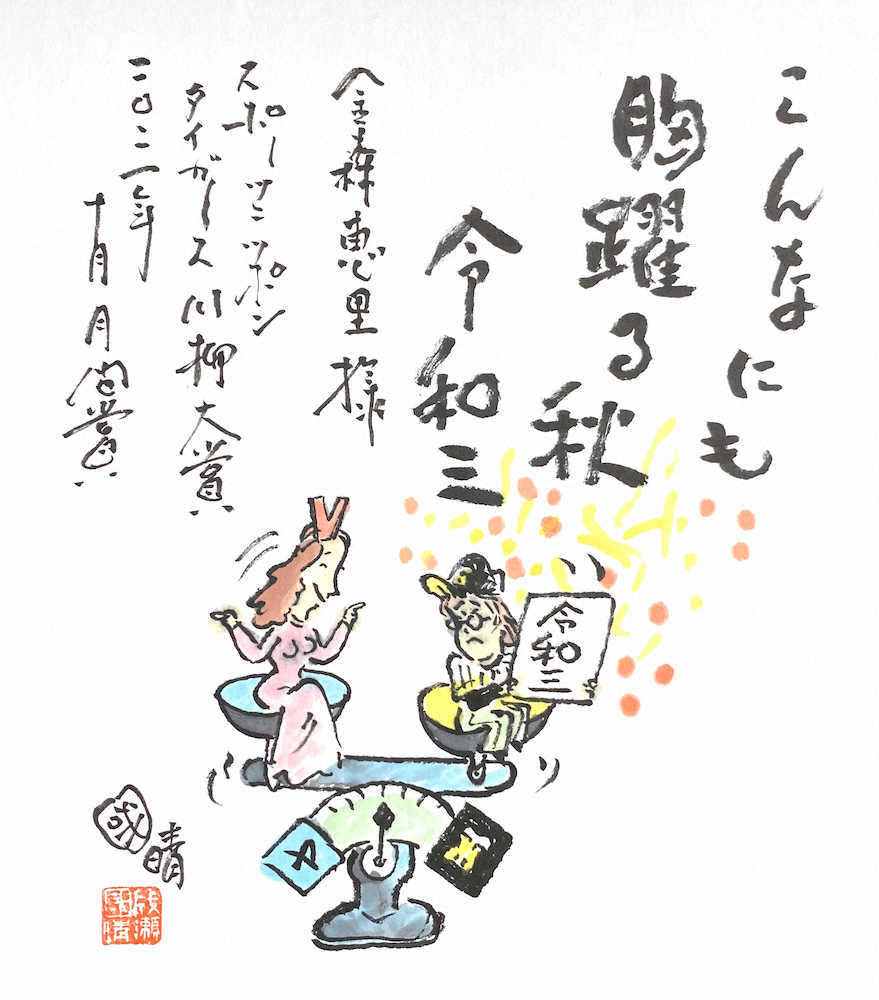 こんなにも
胸躍る秋
令和三
金森恵里様
スポーツニッポン
タイガース川柳大賞
二〇二一年
十月月間賞
令和三
ヤ
國晴
成瀬國晴